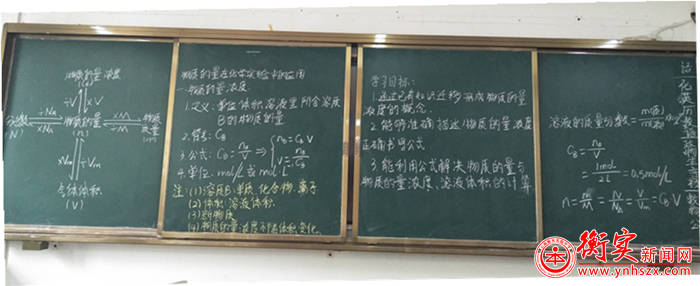 物质的量浓度
(C_B)
÷V ×V
÷N_A
×N_A
物质的量
(n)
×M
÷M
物质
质量
(m)
(N)
×V_m ÷V_m
气体体积
(V)
物质的量在化学实验中的应用
一.物质的量浓度
1.定义:单位体积溶液里所含溶质
B的物质的量
2.符号:C_B
3.公式:C_B=n_B/V ⇒ { n_B=C_B·V
V=n_B/C_B
4.单位:mol/L 或 mol·L⁻¹
注:(1)溶质B:单质、化合物、离子
(2)体积:溶液体积.
(4)物质的量浓度不随体积变化.
学习目标:
1.通过已有知识迁移形成物质的量
浓度的概念.
2.能够准确描述物质的量浓度
正确书写公式
3.能利用公式解决物质的量与
物质的量浓度、溶液体积的计算
溶液的质量分数=
C_B=n_B/V
=1mol/2L=0.5mol/L
n=N/N_A=m/M=V/V_m=C_B·V
衡实新闻网
www.ynhszx.com